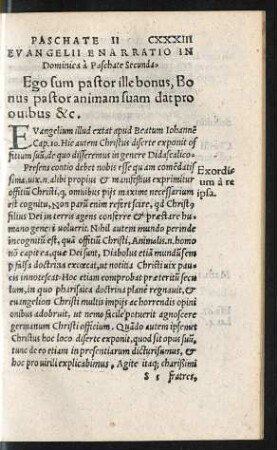 PASCHATE II CXXXIII
EVANGELII ENARRATIO IN
Dominica à Paschate Secunda.
Ego sum pastor ille bonus, Bo
nus pastor animam suam dat pro
ouibus &c.
EVangelium illud extat apud Beatum Iohannē
Cap. 10. Hic autem Christus diserte exponit of
fitium suū, de quo disseremus in genere Didascalico.
Presens contio debet nobis esse quàm comēdatis
sima. uix. n. alibi propius & manifestius exprimitur
offitiū Christi, q omnibus pijs maxime necessarium
est cognitu. Non parū enim refert scire, ad qd Christ9
filius Dei in terris agens conserre & præstare hu
mano generi uoluerit. Nihil autem mundo perinde
incognitū est, quā offitiū Christi, Animalis. n. homo
nō capit ea, quæ sunt Dei, Diabolus etiā mundū eū
sem falsa doctrina excœcat, ut notitia Christi uix pau
cis innotescat. Hoc etiam comprobat præteritū secu
lum, in quo pharisaica doctrina plane regnauit, &
euangelion Christi multis impijs ac horrendis opini
onibus adobruit, ut nemo facile potuerit agnoscere
germanum Christi officium. Quādo autem ipsemet
Christus hoc loco diserte exponit, quod sit opus suū,
tunc de eo etiam in præsentiarum dicturi sumus, &
hoc pro uirili explicabimus. Agite itaq; charissimi
S s fratres,
Exordi
um à re
ipsa.